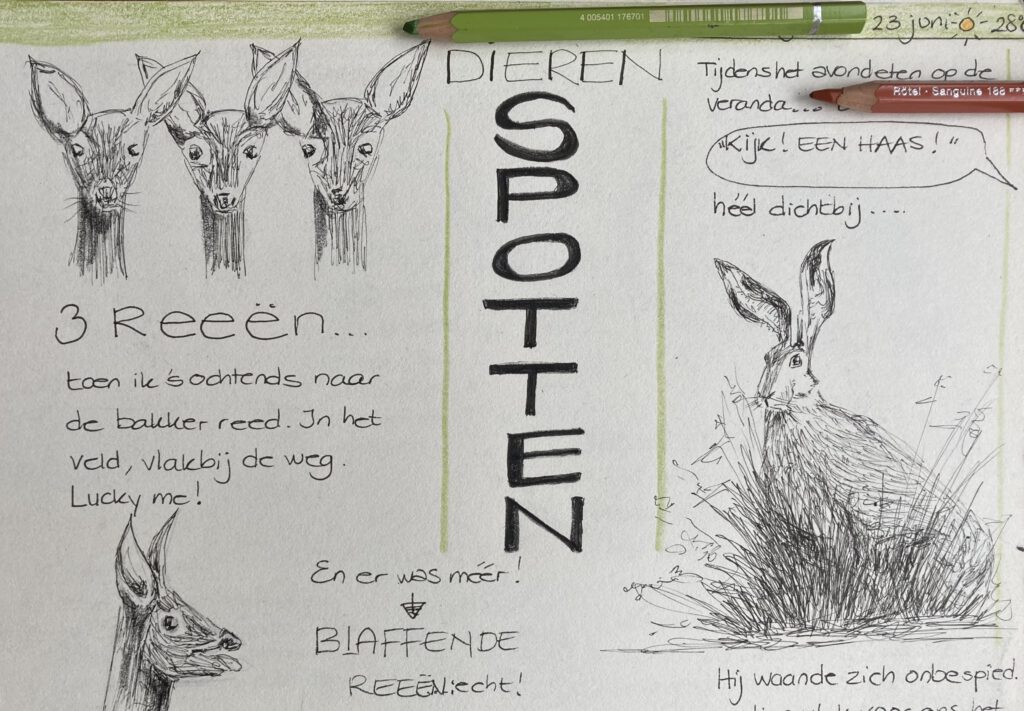 4 005401 176701
23 juni - 28°
DIEREN
SPOTTEN
3 Reeën...
toen ik 's ochtends naar
de bakker reed. In het
veld, vlakbij de weg.
Lucky me!
En er was méér!
BLAFFENDE
REEËN, echt!
Tijdens het avondeten op de
veranda...
Rötel · Sanguine 188
"Kijk! EEN HAAS!"
héél dichtbij.....
Hij waande zich onbespied.